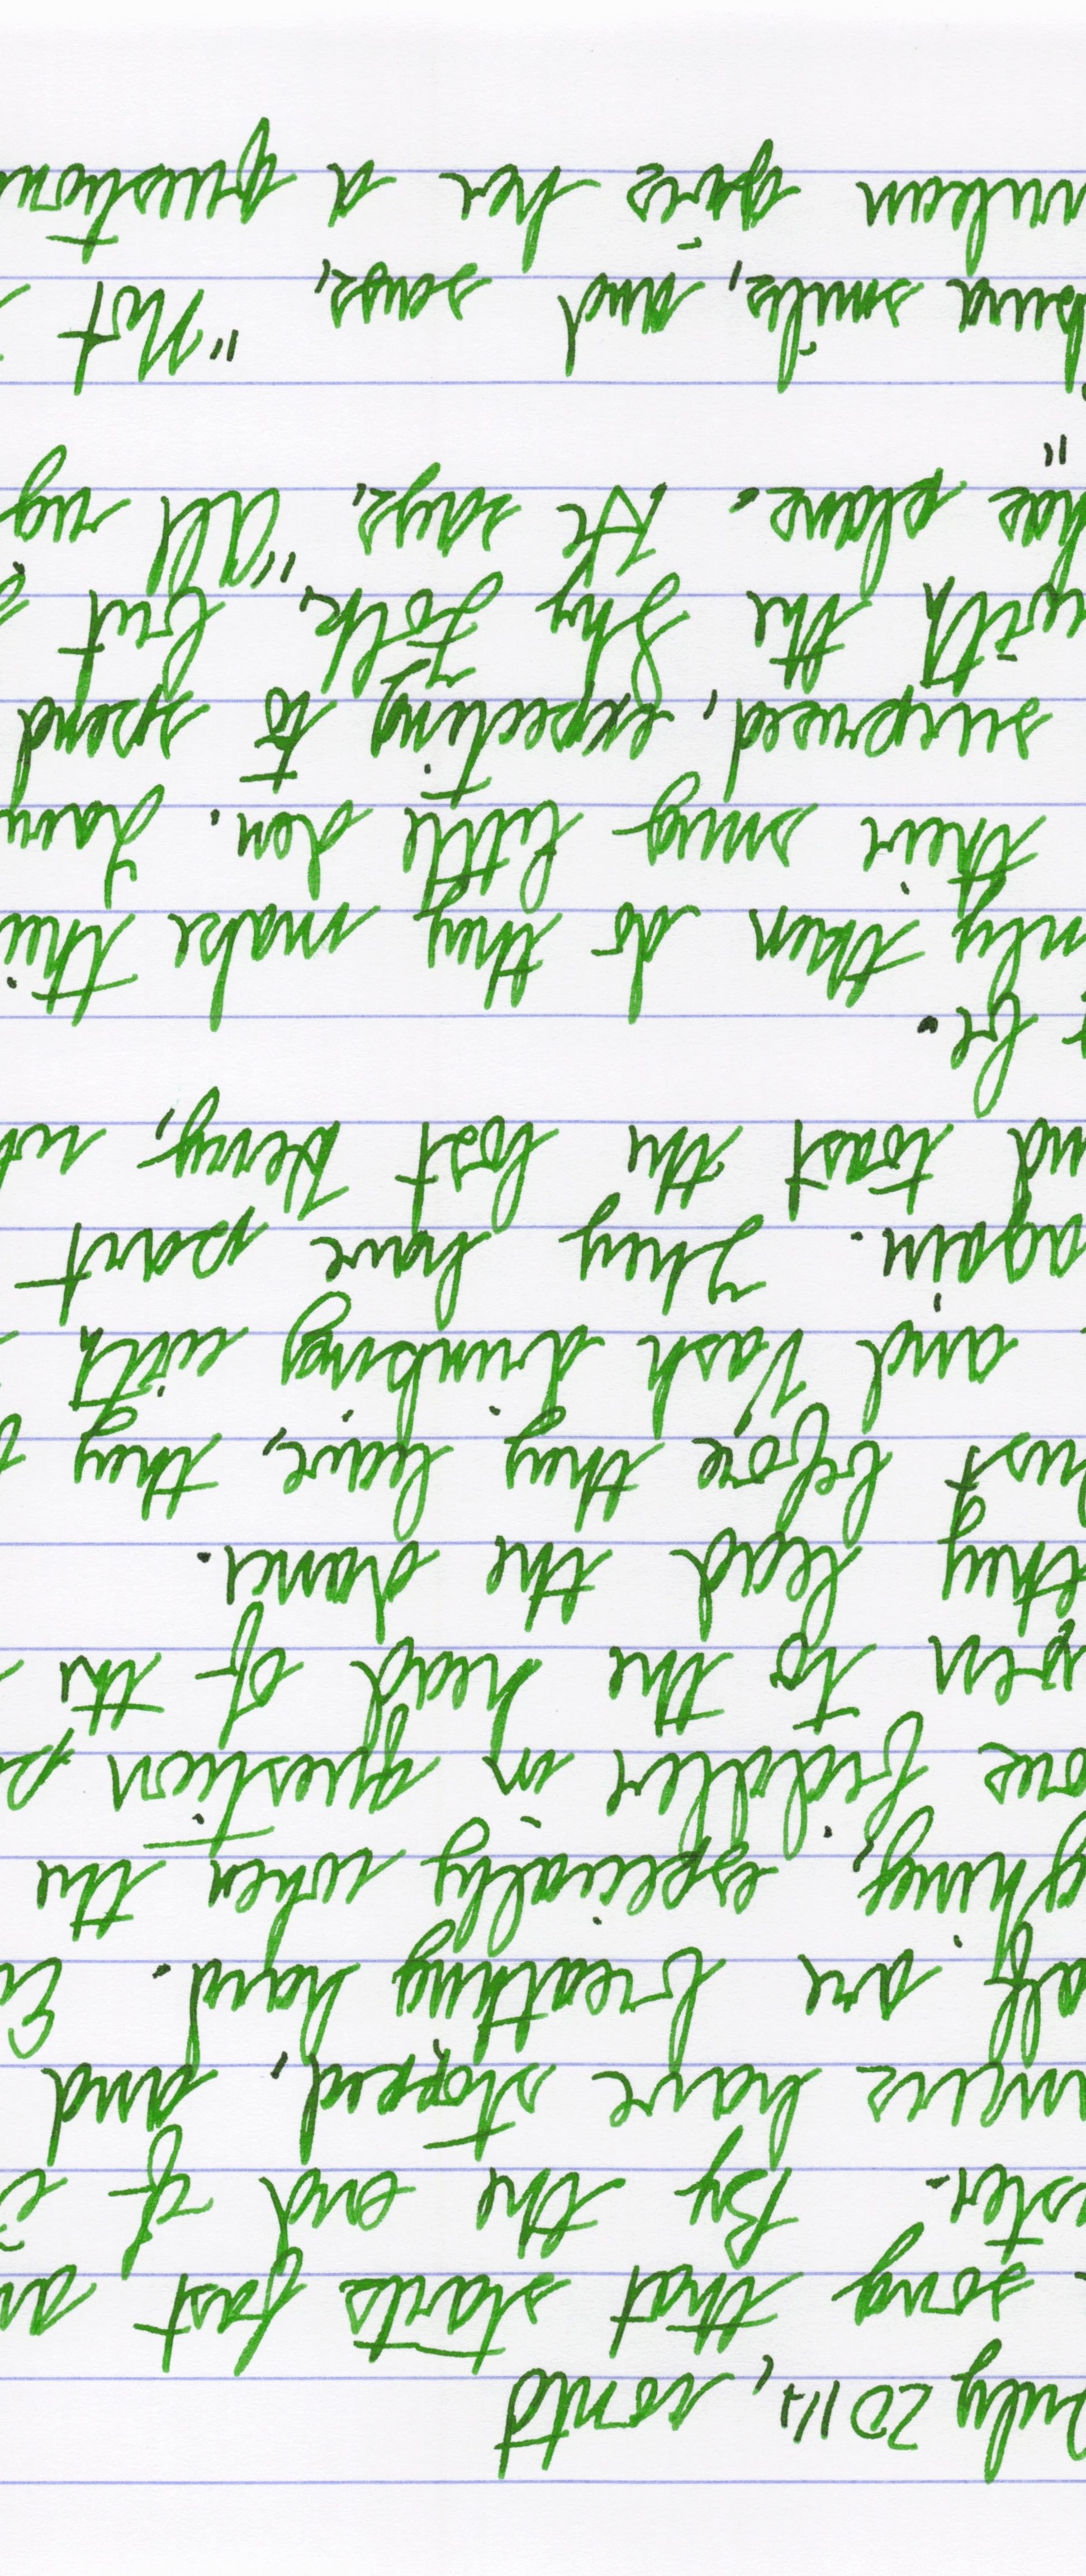 July 2014, cont'd
song that starts fast an
ster. By the end of i
ances have stopped, and
alf are breathing hard. Ev
ghing, especially when the
ove fiddler in question p
pen to the head of the
they lead the dance.
ust before they leave, they f
and Vash drinking with
again. They have part
nd toast the lost Henry, wh
t be.
nly then do they make thei
their snug little den. Dam
surprised, expecting to spend
with the Shy Folk, but g
has plans. He says, "All rig
"
smiles, and says, "Not
gives her a question